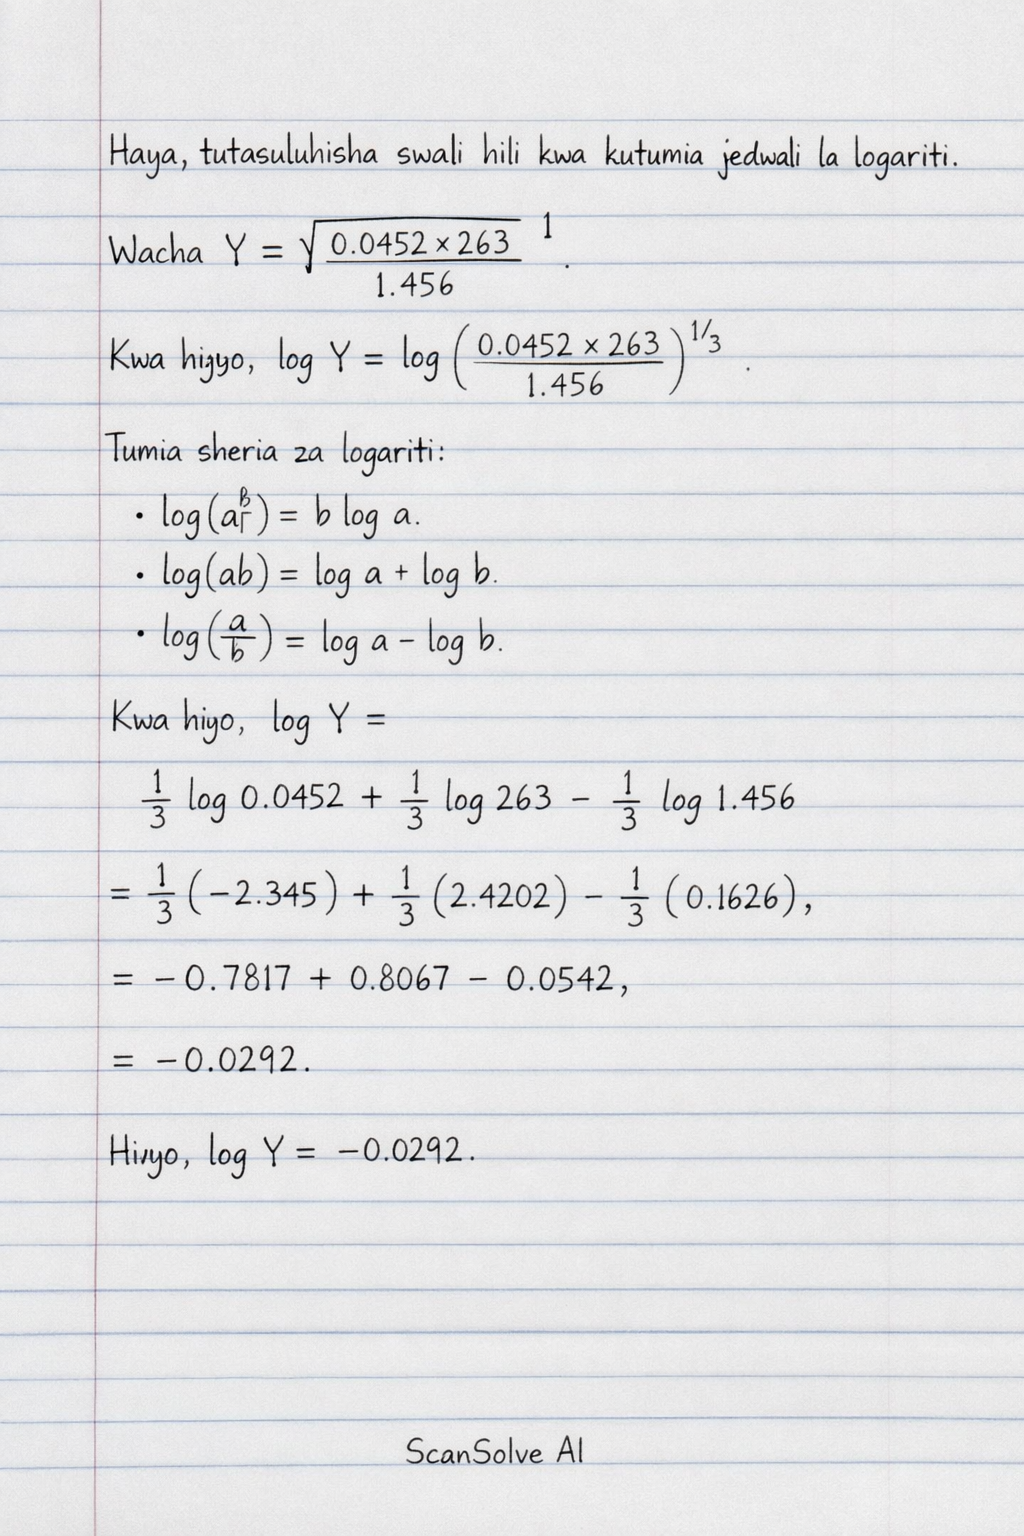 Haya, tutasuluhisha swali hili kwa kutumia jedwali la logariti.
Wacha Y = √(0.0452 × 263 / 1.456) 1 .
Kwa hijyo, log Y = log (0.0452 × 263 / 1.456)^1/3 .
Tumia sheria za logariti:
• log(a) = b log a.
• log(ab) = log a + log b.
• log(a/b) = log a - log b.
Kwa hiyo, log Y =
1/3 log 0.0452 + 1/3 log 263 - 1/3 log 1.456
= 1/3 (-2.345) + 1/3 (2.4202) - 1/3 (0.1626),
= -0.7817 + 0.8067 - 0.0542,
= -0.0292.
Hivyo, log Y = -0.0292.
ScanSolve AI